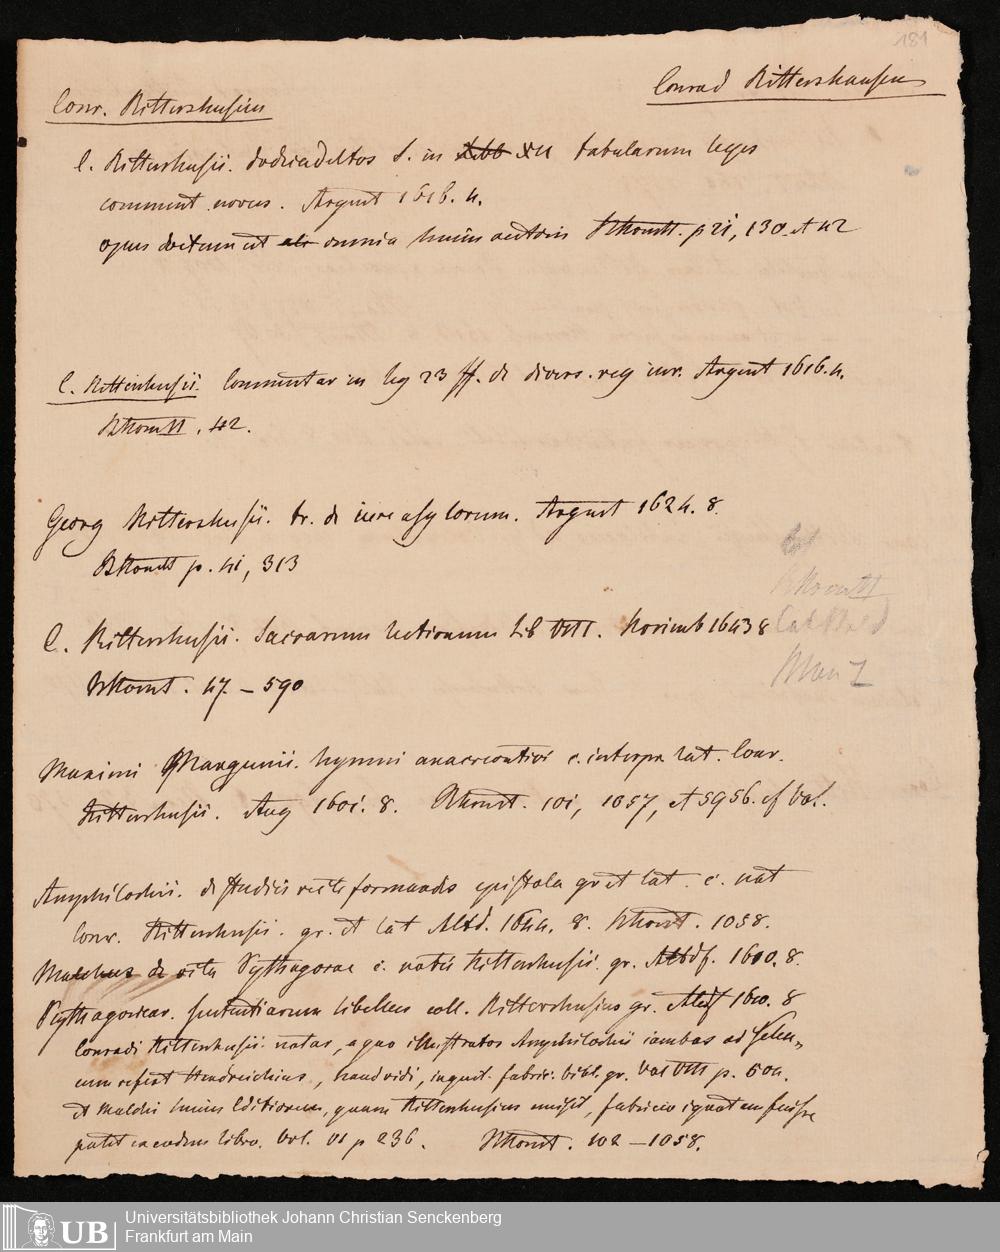 181
Conr. Rittershusius
Conrad Rittershausen
C. Rittershusii. dodecadeltos s. in XII tabularum leges
comment novus. Argent 1616. 4.
opus doctum ut omnia huius auctoris p 21, 130 et 42
C. Rittershusii. Commentar in leg 23 ff. de divers. reg iur. Argent 1616. 4.
42.
Georg Rittershusii. tr. de iure asylorum. Argent 1624. 8.
p. 41, 313
C. Rittershusii. Sacrarum lectionum Lib VIII. Norimb 1643 8
47 – 590
Maximi Margunii. hymni anacreontici c. interpr lat. Conr.
Rittershusii. Aug 1601. 8. 101, 1057, et 5956. cf Val.
Amphilochii. de studiis recte formandis epistola gr et lat. c. not
Conr. Rittershusii. gr. et lat Altd. 1644. 8. 1058.
Malchus de vita Pythagorae c. notis Rittershusii. gr. Altdf. 1610. 8.
Pythagoricar. sententiarum libellus coll. Rittershusius gr. 1610. 8
Conradi Rittershusii. notas, a quo illustratos Amphilochii iambos ad Seleu-
cum refert Hendreichius, haud vidi, inquit. fabric. bibl. gr. Vol VIII p. 504.
et Malchi huius Editionem, quam Rittershusius misit, fabricio ignotam fuisse
patet ex eodem libro. Vol. VI p 236. 102 – 1058.
Universitätsbibliothek Johann Christian Senckenberg
Frankfurt am Main
UB